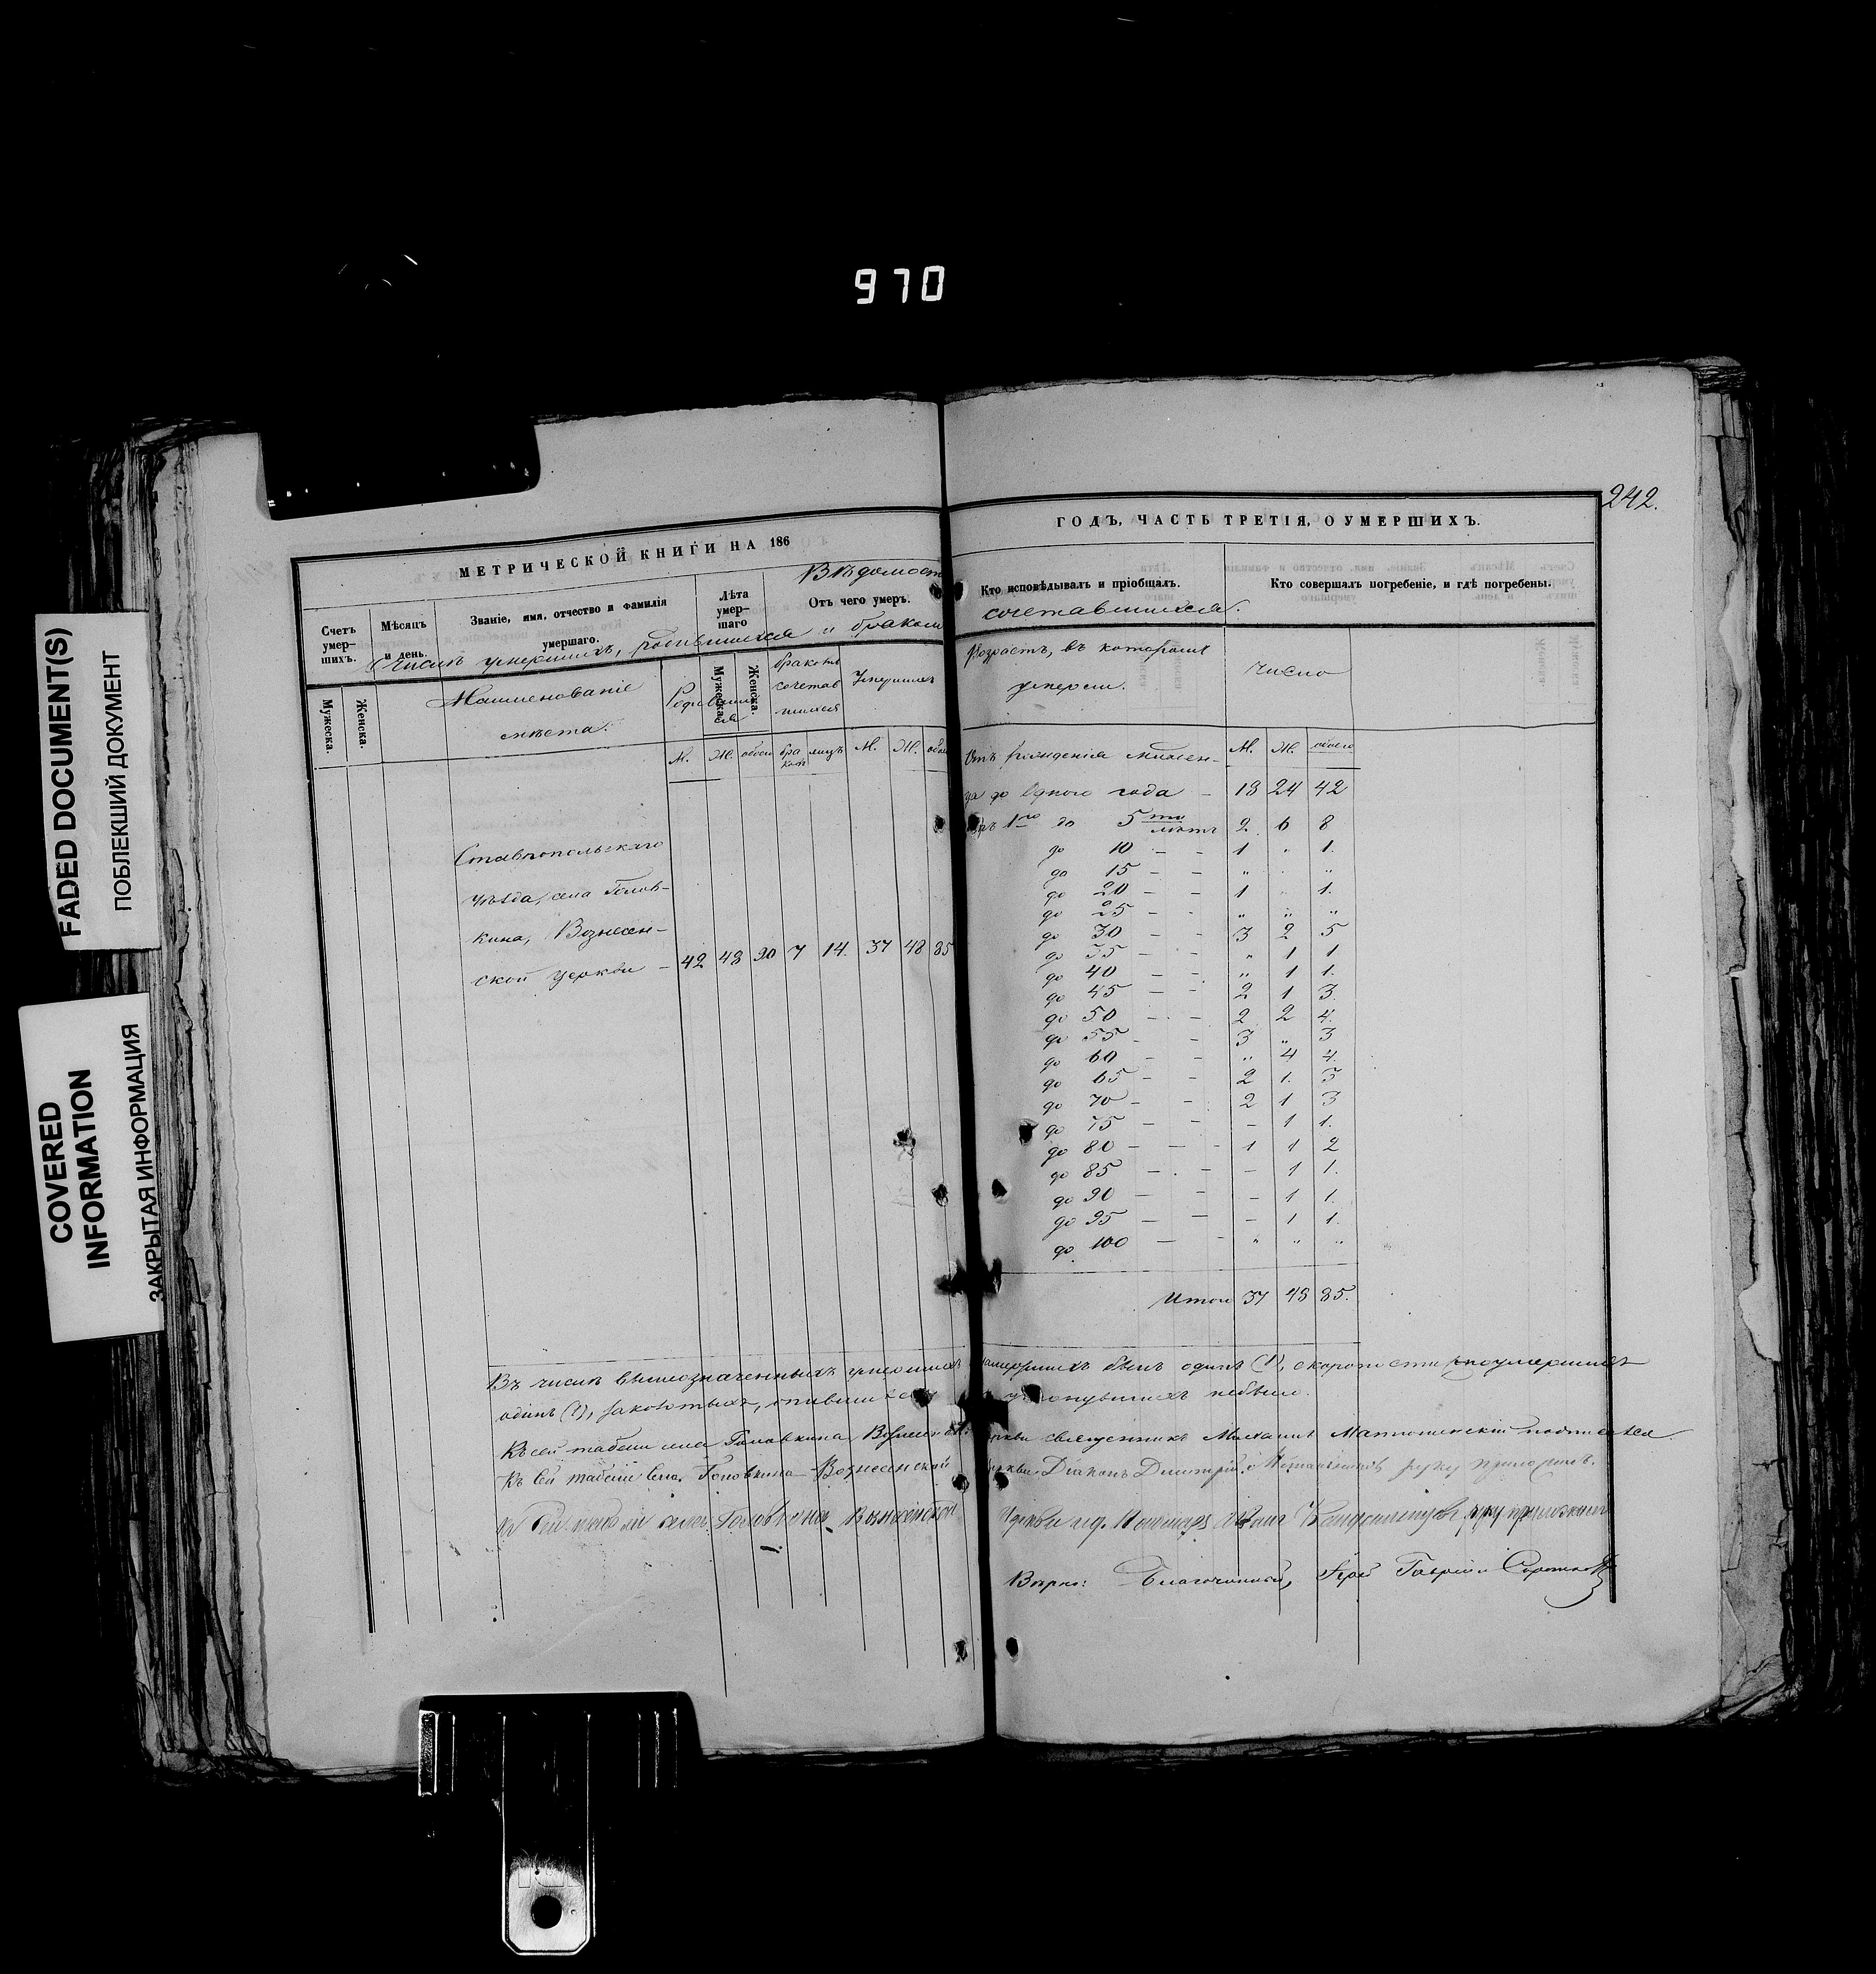 970
FADED DOCUMENT(S)
ПОБЛЕКШИЙ ДОКУМЕНТ
COVERED
INFORMATION
ЗАКРЫТАЯ ИНФОРМАЦИЯ
МЕТРИЧЕСКОЙ КНИГИ НА 186
Вѣдомост
Счетъ умер-шихъ.
Мѣсяцъ и день.
Званіе, имя, отчество и фамилія умершаго.
Лѣта умер-шаго
Отъ чего умеръ.
числѣ умершихъ, родившихся и бракомъ
Мужеска.
Женска.
Наименованіе
мѣста.
Родившихся
Мужеска.
Женска.
браком
сочетав
шихся
Умершихъ
М. Ж. обоег бра ковъ лицъ М. Ж. обое
Ставропольскаго
уѣзда, села Голов-
кина, Вознесен-
ской церкви – 42 48 90 7 14. 37 48 85
242.
ГОДЪ, ЧАСТЬ ТРЕТІЯ, О УМЕРШИХЪ.
Кто исповѣдывалъ и пріобщалъ.
Кто совершалъ погребеніе, и гдѣ погребены.
сочетавшихся.
Возрастъ, въ которомъ
умерли.
число
Отъ рожденія младен-
М. Ж. обоего
ца до одного года – 18 24 42
1го до 5ти лѣтъ 2. 6 8
до 10 – – 1 „ 1.
до 15 – – „ „ „
до 20 – – 1 „ 1.
до 25 – – „ „ „
до 30 – – 3 2 5
до 35 – – „ 1 1
до 40 – – „ 1 1.
до 45 – – 2 1 3.
до 50 – – 2 2 4.
до 55 – – 3 „ 3
до 60 – – „ 4 4.
до 65 – – 2 1. 3
до 70 – – 2 1 3
до 75 – – – 1 1.
до 80 – – – 1 1 2
до 85 – – – 1 1.
до 90 – – – 1 1.
до 95 – – – 1 1.
до 100 – – „ „ „
Итого 37 48 85.
Въ числѣ вышеозначенныхъ умершихъ замерзшихъ былъ одинъ (1), скоропостижноумершихъ
одинъ (1), утонувшихъ небыло.
Къ сей табели села Головкина Вознесенской церкви священникъ Михаилъ подписался
Къ сей табели села Головкина Вознесенской церкви Діаконъ Димитрій руку приложилъ.
Къ сей табели села Головкина Вознесенской Церкви руку приложилъ
Вѣрно: Благочинный, Іерей Гавріилъ